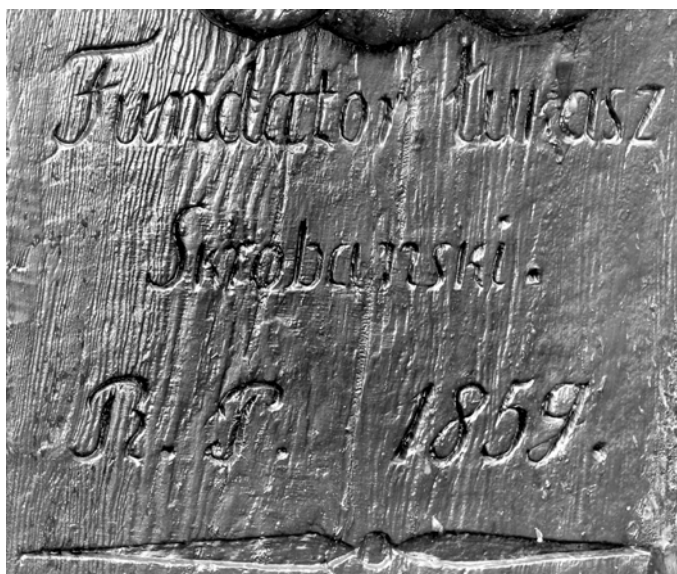 Fundator Łukasz
Skrobanski.
R. P. 1859.